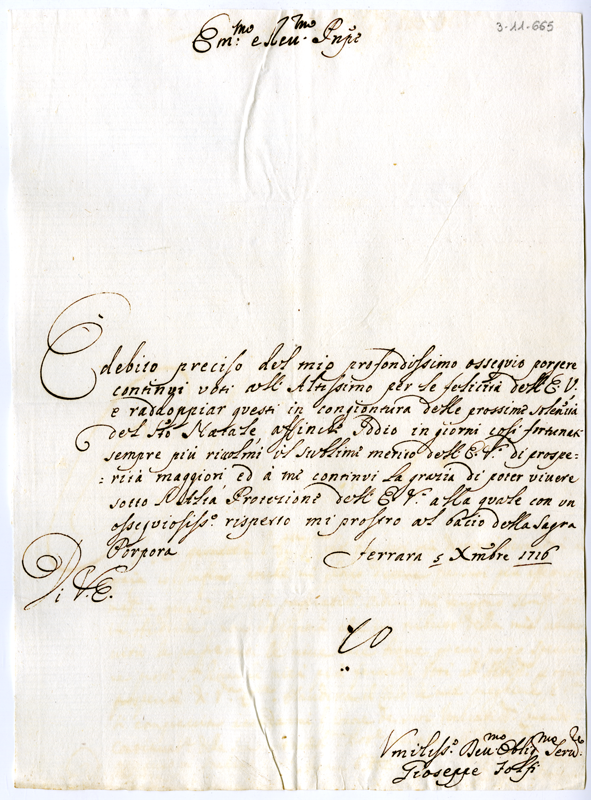 3-11-665
Em.mo e Reu.mo Pnpe
È debito preciso del mio profondissimo ossequio porgere
continui voti all'Altissimo per le felicità dell'E.V.
e raddoppiar questi in congiontura delle prossime solenità
del Sto Natale affinche Iddio in giorni così fortunati
sempre più ricolmi il sublime merito dell'E.V. di prospe=
=rità maggiori, ed à me continui la grazia di poter viuere
sotto l'Alta Protezione dell'E.V. alla quale con un
ossequiosiss.o rispetto mi prostro al bacio della Sagra
Porpora Ferrara 5 Xmbre 1716
Di V.E.
Vmiliss.o Deu.mo Oblig.mo Seru.re
Gioseppe